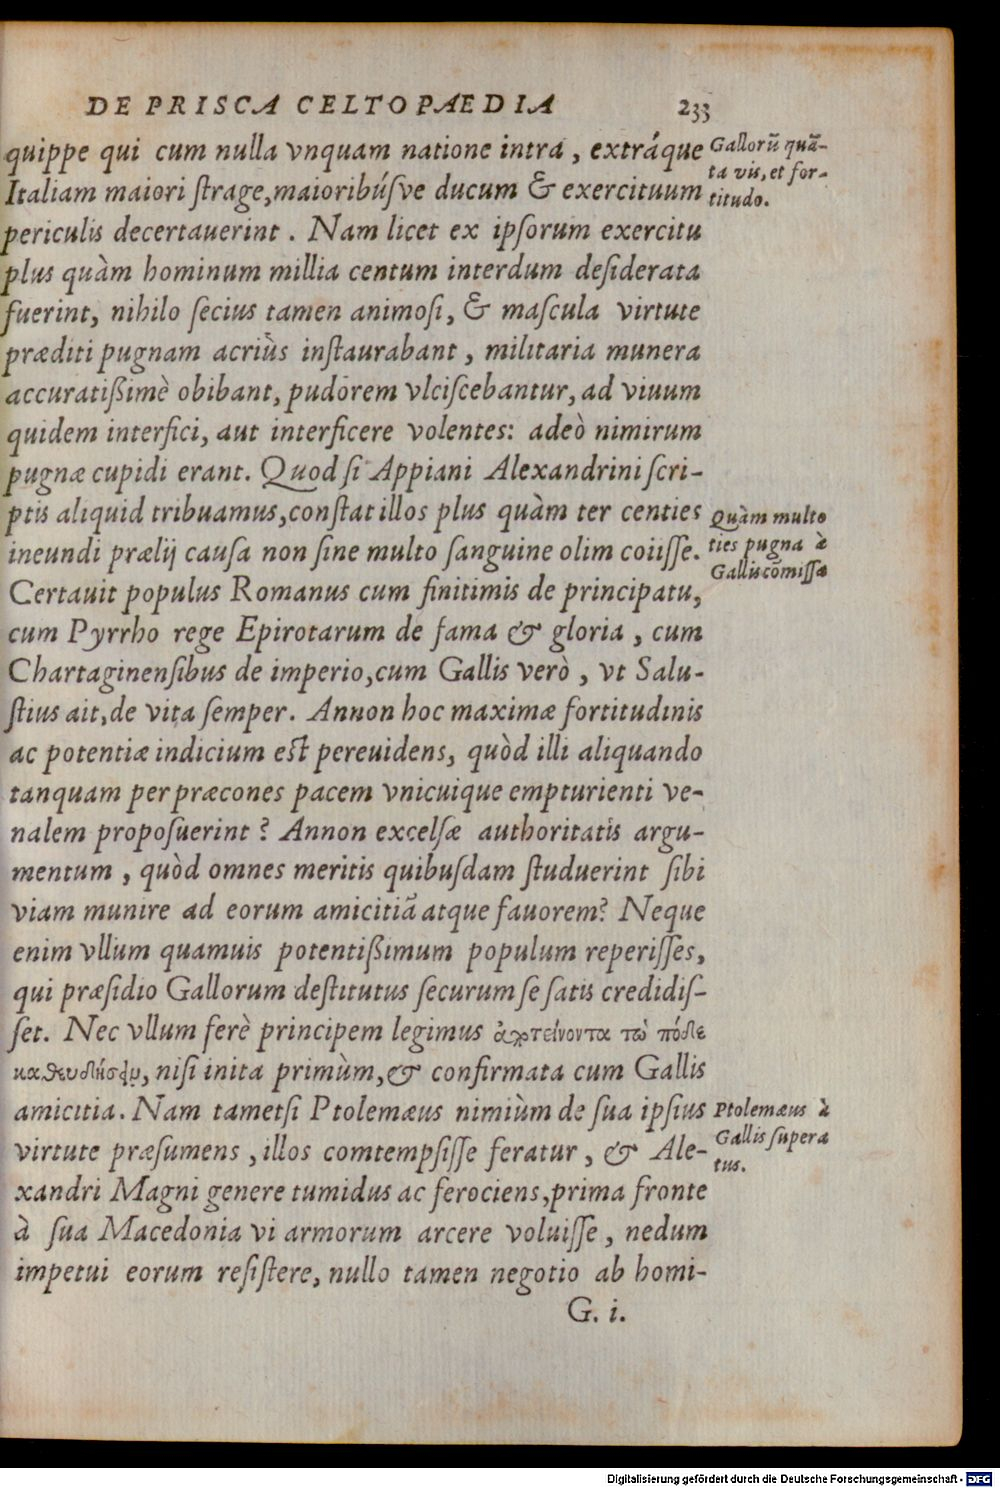 DE PRISCA CELTOPAEDIA 233
quippe qui cum nulla vnquam natione intrá, extráque
Italiam maiori ſtrage, maioribúſve ducum & exercituum
periculis decertauerint. Nam licet ex ipſorum exercitu
plus quàm hominum millia centum interdum deſiderata
fuerint, nihilo ſecius tamen animoſi, & maſcula virtute
præditi pugnam acriùs inſtaurabant, militaria munera
accuratißimè obibant, pudorem vlciſcebantur, ad viuum
quidem interfici, aut interficere volentes: adeò nimirum
pugnæ cupidi erant. Quod ſi Appiani Alexandrini ſcri-
ptis aliquid tribuamus, conſtat illos plus quàm ter centies
ineundi prælij cauſa non ſine multo ſanguine olim coiiſſe.
Certauit populus Romanus cum finitimis de principatu,
cum Pyrrho rege Epirotarum de fama & gloria, cum
Chartaginenſibus de imperio, cum Gallis verò, vt Salu-
ſtius ait, de vita ſemper. Annon hoc maximæ fortitudinis
ac potentiæ indicium eſt pereuidens, quòd illi aliquando
tanquam per præcones pacem vnicuique empturienti ve-
nalem propoſuerint? Annon excelſæ authoritatis argu-
mentum, quòd omnes meritis quibuſdam ſtuduerint ſibi
viam munire ad eorum amicitiã atque fauorem? Neque
enim vllum quamuis potentißimum populum reperiſſes,
qui præſidio Gallorum deſtitutus ſecurum ſe ſatis credidiſ-
ſet. Nec vllum ferè principem legimus
niſi inita primùm, & confirmata cum Gallis
amicitia. Nam tametſi Ptolemæus nimiùm de ſua ipſius
virtute præſumens, illos comtempſiſſe feratur, & Ale-
xandri Magni genere tumidus ac ferociens, prima fronte
à ſua Macedonia vi armorum arcere voluiſſe, nedum
impetui eorum reſiſtere, nullo tamen negotio ab homi-
G. i.
Gallorũ quã-
ta vis, et for-
titudo.
Quàm multo
ties pugna à
Gallis cõmiſſa
Ptolemæus à
Gallis ſupera
tus.
Digitalisierung gefördert durch die Deutsche Forschungsgemeinschaft - DFG